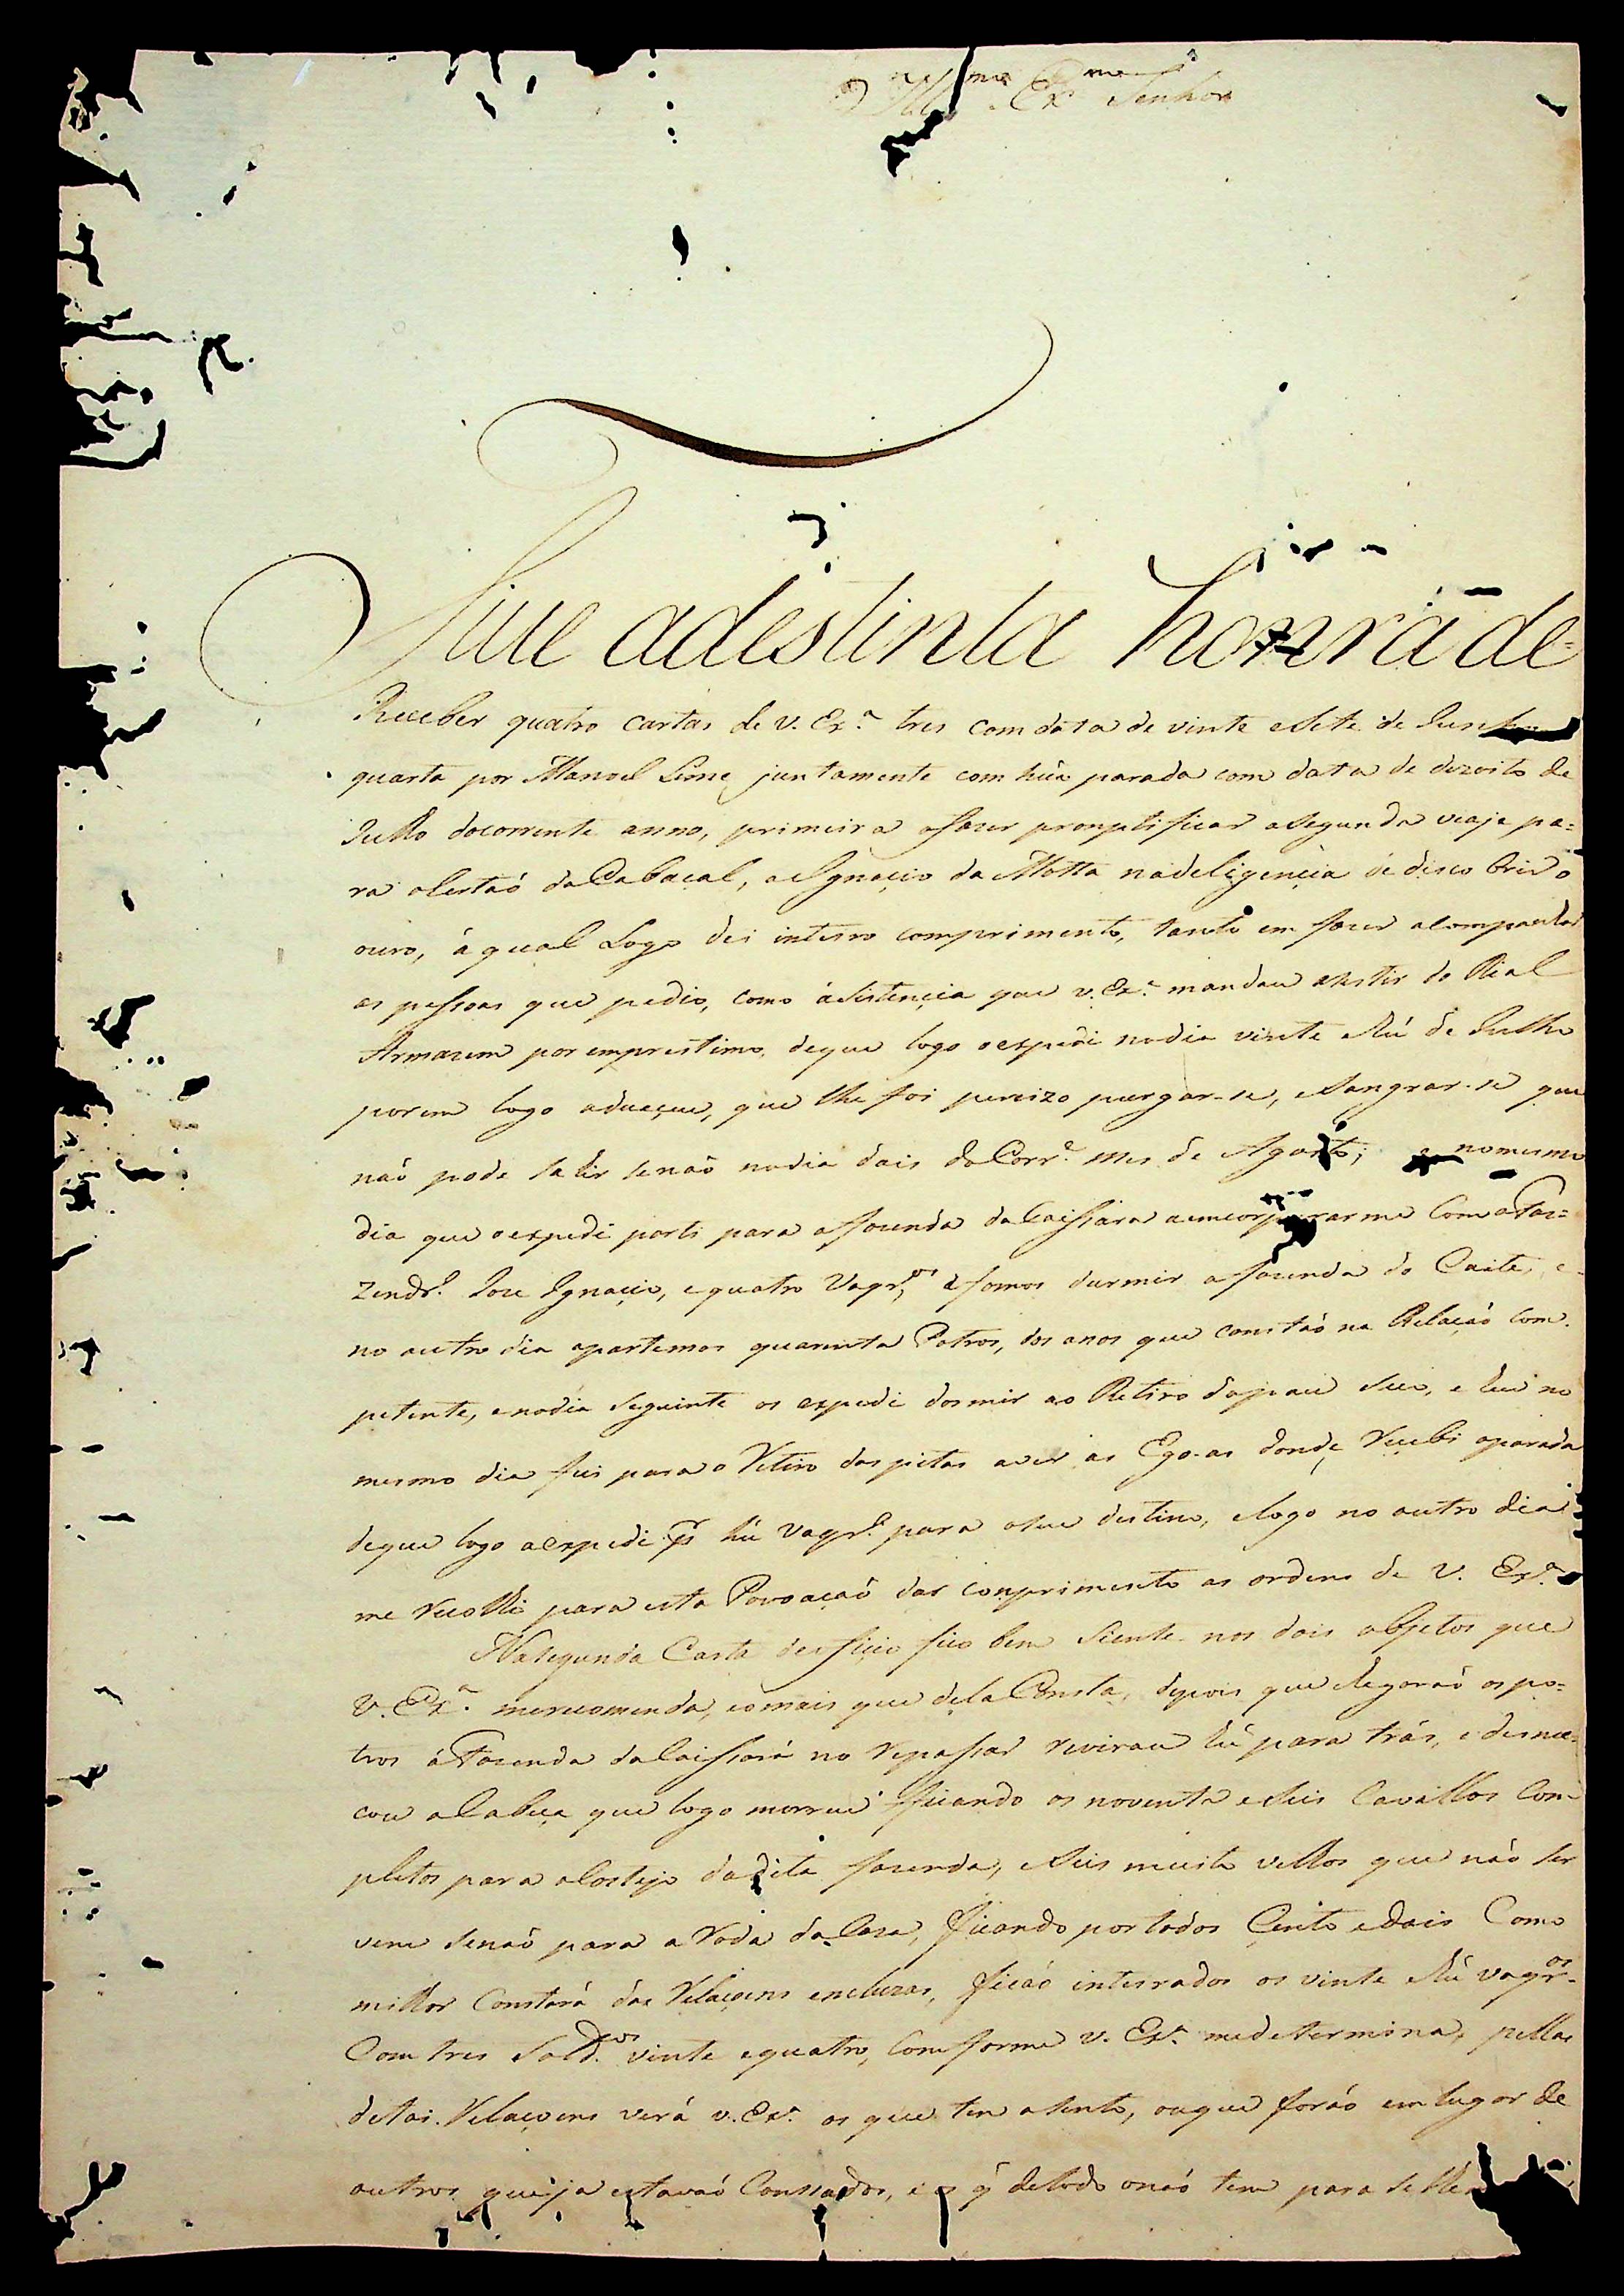 Illmo. Exmo. Senhor
Tive adestinta honra de=
Receber quatro cartas de V. Exª. tres com data de vinte esete de Junho
quarta por Manoel Leme juntamente com hũa parada com data de dezoito de
Julho docorrente anno, primeira afazer promptificar asegunda viaje pa=
ra osertaõ doCabaçal, a Ignacio da Motta nadeligencia de descobrir o
ouro, áqual Logo dei inteiro comprimento, tanto em fazer aComprar
as pessoas que pedio, como ásistençia que v. Exª. mandou asistir do Real
Armazem por emprestimo, deque logo oexpedi nodia vinte ehũ de Julho
porem logo aduaçeu, que lhe foi percizo purgar-se, esangrar-se que
naõ pode sahir senaõ nodia dois doCorrᵉ. mes de Agosto; e nomesmo
dia que oexpedi parti para afazenda daCaissara aemcorporarme Com oFaz=
zendrº. Joze Ignacio, e quatro Vaqrºˢ, efomos durmir afazenda do Caite, e
no outro dia apartemos quarenta Potros, dos anos que constaõ na Relaçaõ Com.
petente, enodia seguinte os expedi dormir ao Retiro dopau Seco, e Eu no
mesmo dia fui para o Retiro das pitas aver as Egoas donde Reçebi aparada
deque logo aexpedi pr hũ Vaqrº. para oseu destino, elogo no outro dia
me Recolhi para esta Povoaçaõ dar conprimento as ordens de V. Exª.
Nasegunda Carta deofficio fico bem Siente nos dois objetos que
V. Exª. merecomenda, eomais que dela Consta, depois que chegaraõ os po=
tros áFazenda daCaissara no Repassar Revirou hũ para trás, e desnu=
cou aCabeça que logo morreu ficando os noventa eseis Cavallos Com
pletos para oCosteio dadita fazenda, eseis muito velhos que naõ ser
vem senaõ para a Roda daCaza, ficando portodos Cento edois Como
milhor Constará das Relaçoens encluzas, ficaõ inteirados os vinte ehũ vaqrºˢ.
Com tres Soldᵒˢ. vinte equatro, Comforme v. Exª. medetermina, pellas
detas Relaçoens verá v. Exª. os que tem asento, ouque foraõ em lugar de
outros queija estavaõ Conssados, e os q̃ detodo onaõ tem para selhe